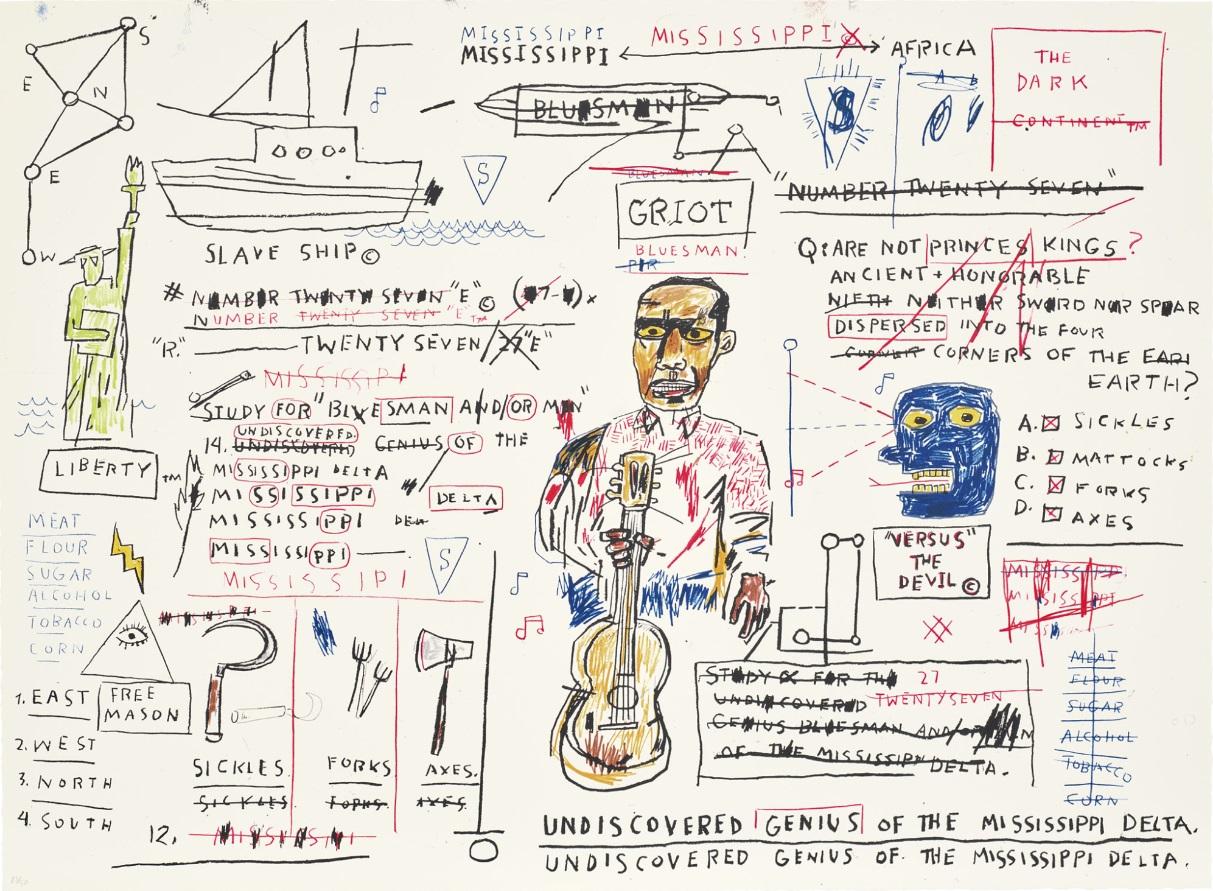 S
E
N
E
W
MISSISSIPPI
MISSISSIPPI
MISSISSIPPI
AFRICA
S
A B
THE
DARK
CONTINENT™
BLUESMAN
S
BLUESMAN
GRIOT
BLUESMAN.
"NUMBER TWENTY SEVEN"
SLAVE SHIP©
# NUMBER TWENTY SEVEN "E"©
NUMBER TWENTY SEVEN "E"™
"R." TWENTY SEVEN/27 "E"
MISSISSIPI
STUDY FOR "BLUESMAN AND/OR MEN"
UNDISCOVERED
14. UNDISCOVERED GENIUS OF THE
MISSISSIPPI DELTA
MISSISSIPPI
DELTA
MISSISSIPPI DELTA
MISSISSIPPI
MISSISSIPI
S
Q: ARE NOT PRINCES KINGS?
ANCIENT + HONORABLE
NIETH NEITHER SWORD NOR SPEAR
DISPERSED INTO THE FOUR
CORNER CORNERS OF THE EAR
EARTH?
A. SICKLES
B. MATTOCKS
C. FORKS
D. AXES
LIBERTY™
MEAT
FLOUR
SUGAR
ALCOHOL
TOBACCO
CORN
FREE
MASON
1. EAST
2. WEST
3. NORTH
4. SOUTH
SICKLES.
SICKLES.
FORKS
FORKS.
AXES.
AXES.
12. MISSISSIPPI
"VERSUS"
THE
DEVIL©
MISSISSIPPI
MISSISSIPPI
MEAT
FLOUR
SUGAR
ALCOHOL
TOBACCO
CORN
STUDY FOR THE 27
UNDISCOVERED TWENTYSEVEN
GENIUS BLUESMAN AND/OR MEN
OF THE MISSISSIPPI DELTA.
UNDISCOVERED GENIUS OF THE MISSISSIPPI DELTA.
UNDISCOVERED GENIUS OF THE MISSISSIPPI DELTA.